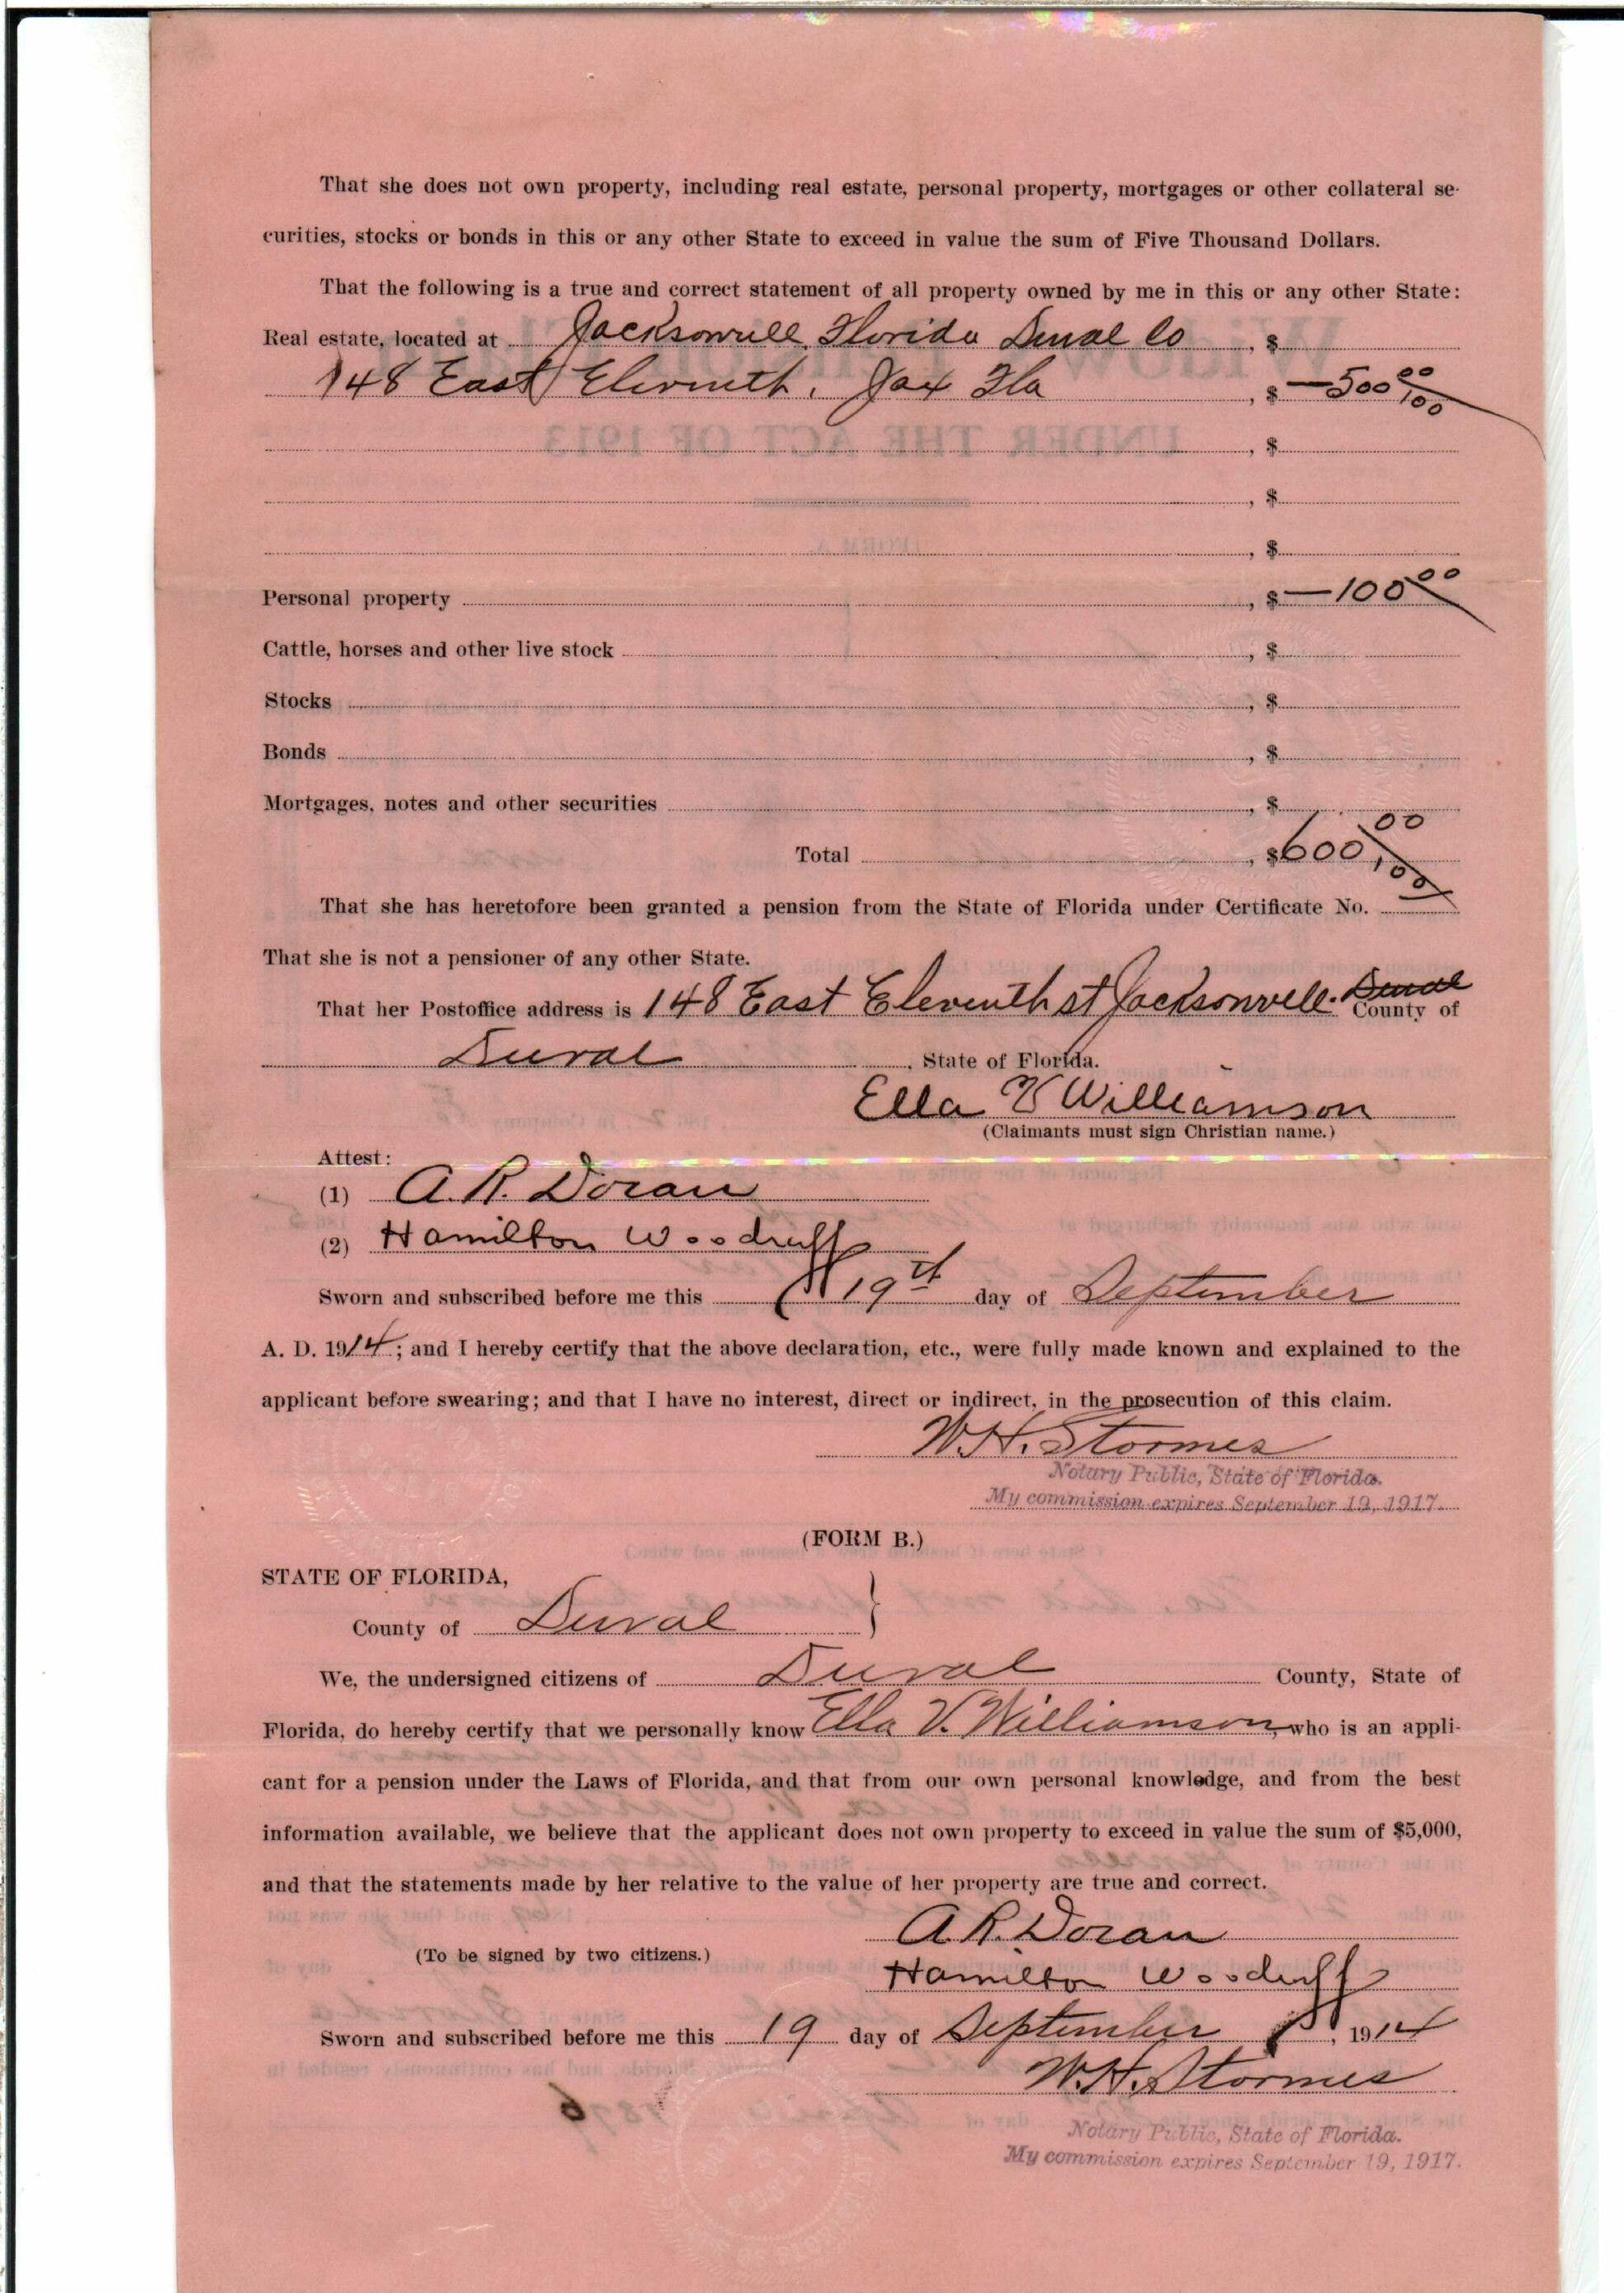 That she does not own property, including real estate, personal property, mortgages or other collateral se-
curities, stocks or bonds in this or any other State to exceed in value the sum of Five Thousand Dollars.
That the following is a true and correct statement of all property owned by me in this or any other State:
Real estate, located at Jacksonville, Florida Duval Co , $
148 East Eleventh, Jax Fla , $ —500 00/100
, $
, $
, $
Personal property , $ —100 00
Cattle, horses and other live stock , $
Stocks , $
Bonds , $
Mortgages, notes and other securities , $
Total , $600 00/100
That she has heretofore been granted a pension from the State of Florida under Certificate No. —
That she is not a pensioner of any other State.
That her Postoffice address is 148 East Eleventh st Jacksonville. Duval County of
Duval , State of Florida.
Ella V Williamson
(Claimants must sign Christian name.)
Attest:
(1) A. R. Doran
(2) Hamilton Woodruff
Sworn and subscribed before me this 19th day of September
A. D. 1914; and I hereby certify that the above declaration, etc., were fully made known and explained to the
applicant before swearing; and that I have no interest, direct or indirect, in the prosecution of this claim.
W. H. Stormes
Notary Public, State of Florida.
My commission expires September 19, 1917.
(FORM B.)
STATE OF FLORIDA,
County of Duval }
We, the undersigned citizens of Duval County, State of
Florida, do hereby certify that we personally know Ella V. Williamson, who is an appli-
cant for a pension under the Laws of Florida, and that from our own personal knowledge, and from the best
information available, we believe that the applicant does not own property to exceed in value the sum of $5,000,
and that the statements made by her relative to the value of her property are true and correct.
A. R. Doran
(To be signed by two citizens.)
Hamilton Woodruff
Sworn and subscribed before me this 19 day of September , 1914
W. H. Stormes
Notary Public, State of Florida.
My commission expires September 19, 1917.